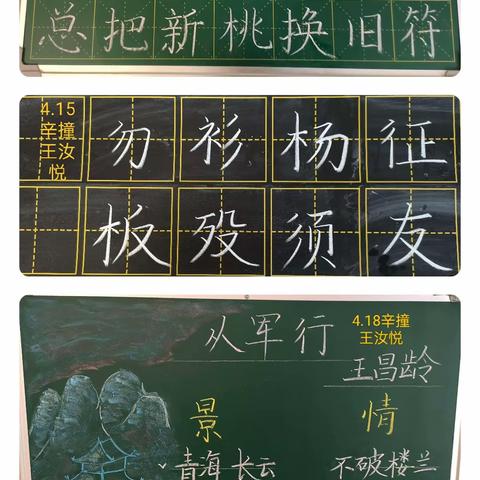 总把新桃换旧符
4.15
辛撞
王汝
悦
勿衫杨征
板殁须友
从军行
4.18辛撞
王汝悦
王昌龄
景 情
青海长云 不破楼兰